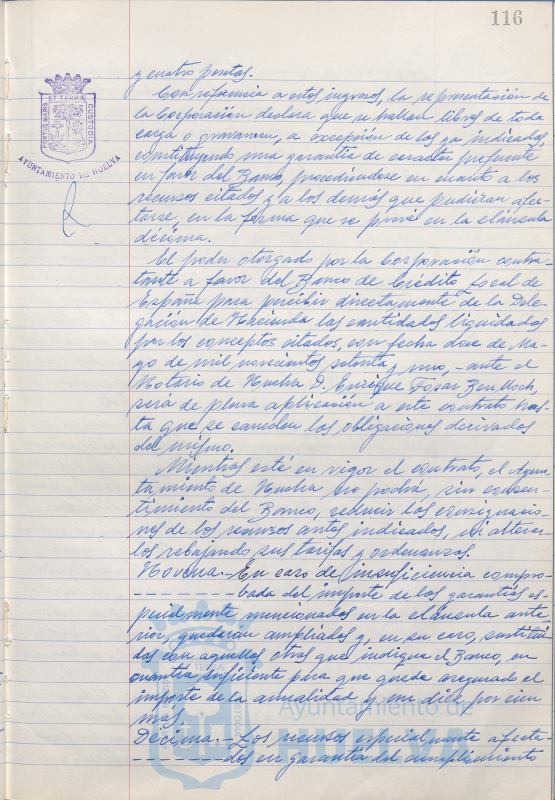 116
PORTUS MARIS
ET TERRAE
CUSTODIA
AYUNTAMIENTO DE HUELVA
y cuatro pesetas.
Con referencia a estos ingresos, la representación de
la Corporación declara que se hallan libres de toda
carga o gravamen, a excepción de los ya indicados,
constituyendo una garantía de carácter preferente
en favor del Banco, procediéndose en cuanto a los
recursos citados y a los demás que pudieran afec-
tarse, en la forma que se prevé en la cláusula
décima.
El poder otorgado por la Corporación contra-
tante a favor del Banco de Crédito Local de
España para percibir directamente de la Dele-
gación de Hacienda las cantidades liquidadas
por los conceptos citados, con fecha doce de Ma-
yo de mil novecientos setenta y uno, - ante el
Notario de Huelva D. Enrique
será de plena aplicación a este contrato has-
ta que se cancelen las obligaciones derivadas
del mismo.
Mientras esté en vigor el contrato, el Ayun-
tamiento de Huelva no podrá, sin consen-
timiento del Banco, reducir las consignacio-
nes de los recursos antes indicados, ni alterar-
los rebajando sus tarifas y ordenanzas.
Novena.- En caso de insuficiencia compro-
bada del importe de las garantías es-
pecialmente mencionados en la cláusula ante-
rior, quedarán ampliadas y, en su caso, sustituí-
das con aquellos otros que indique el Banco, en
cuantía suficiente para que quede asegurado el
importe de la anualidad y un diez por cien
mas.
Décima.- Los recursos especialmente afecta-
dos en garantía del cumplimiento
Ayuntamiento de
HUELVA